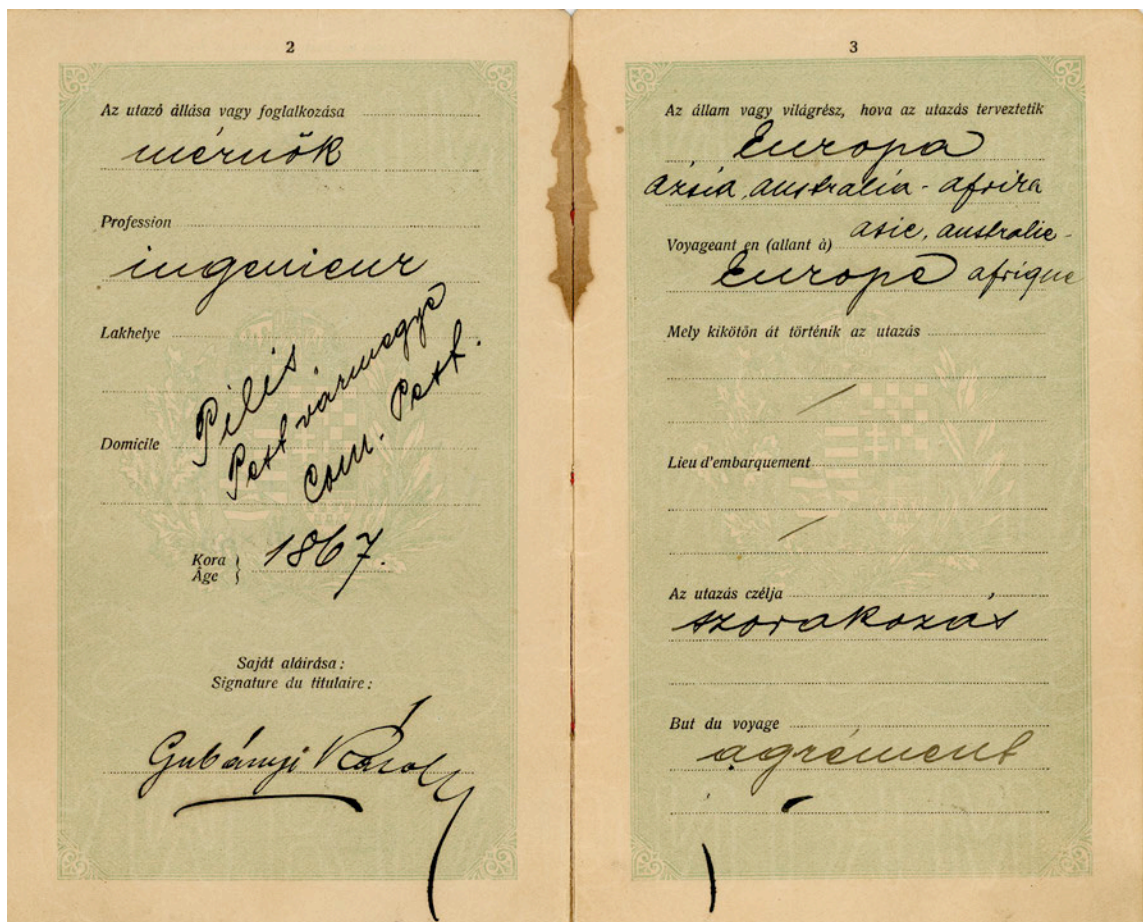 2
Az utazó állása vagy foglalkozása
mérnök
Profession
ingenieur
Lakhelye
Pilis
Pest vármegye
Domicile
Com. Pest.
Kora
Âge
1867.
Saját aláírása:
Signature du titulaire:
Gubányi Károly
3
Az állam vagy világrész, hova az utazás terveztetik
Europa
ázsia, australia - afrika
Voyageant en (allant à)
asie, australie -
Europe afrique
Mely kikötőn át történik az utazás
/
Lieu d'embarquement
/
Az utazás czélja
szorakozás
But du voyage
agrément